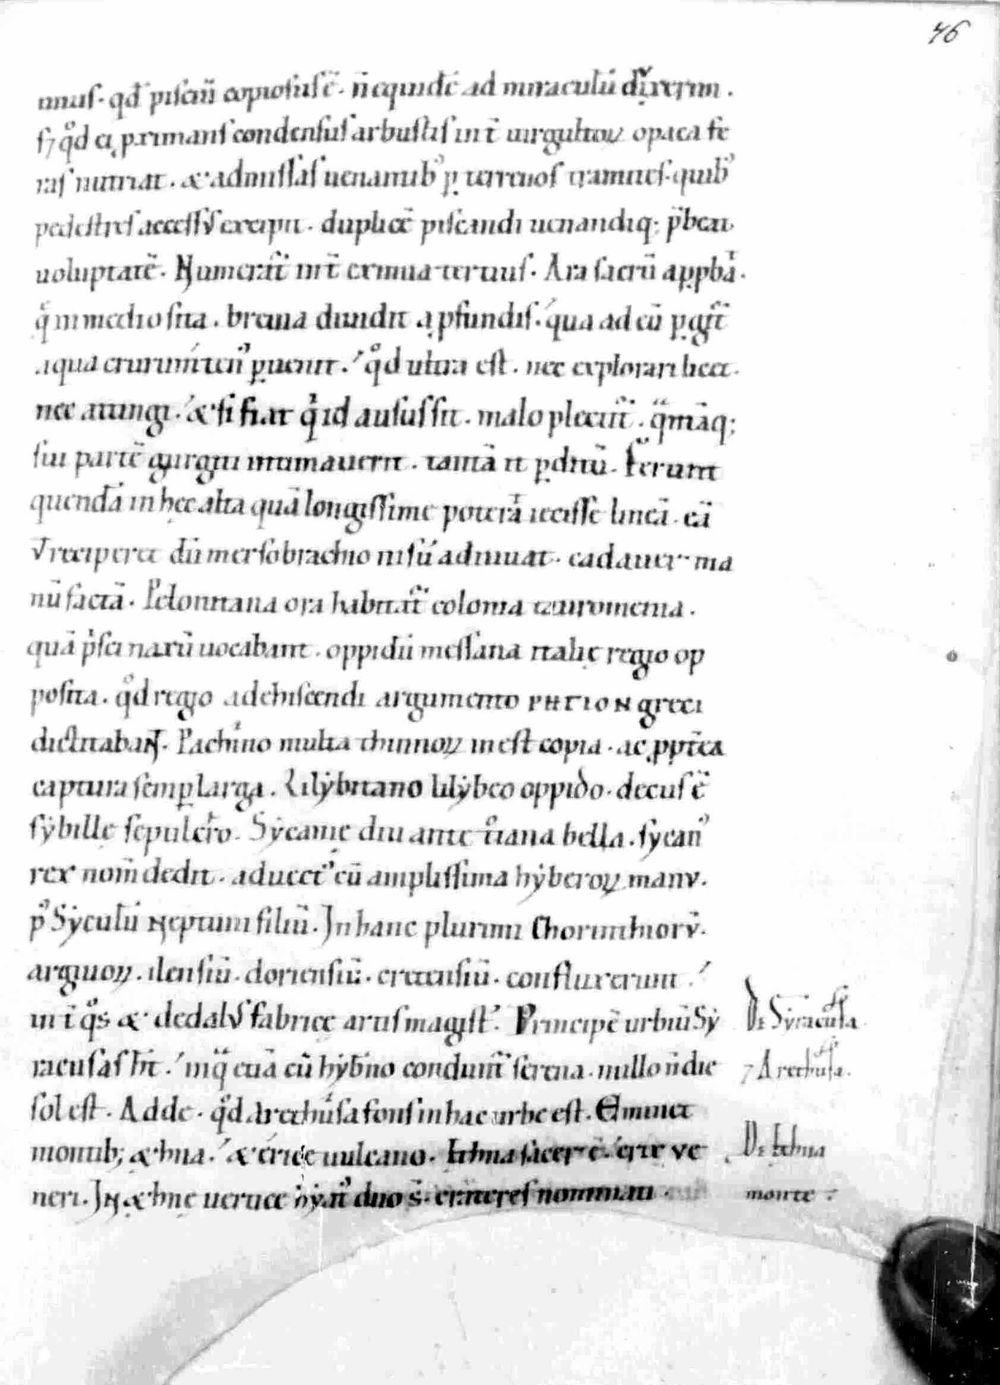 46
mus. qđ pisciū copiosus ē. n̄ equidē ad miraculū dixerim.
s; qͦd ei ꝓximans condensus arbustis int̄ uirgultoꝝ opaca fe
ras nutriat. & admissas uenantibꝰ ꝑ terrenos tramites. quibꝰ
pedestres accessus excipit. duplicē piscandi uenandiq; p̄bet
uoluptatē. Numerat̄ int̄ eximia tertius. Ara sacrū app̱bat.
q̄ in medio sita. breuia diuidit a ꝓfundis. qua ad eū pergit̄
aqua crurum tenꝰ ꝑuenit. qͦd ultra est. nec explorari licet.
nec attingi. & si fiat qͥ id ausus sit. malo plectit̄. q̄māq;
sui partē gurgiti intimauerit. tantā it ꝑditū. Ferunt
quendā in hęc alta quā longissime poterat iecisse lineā. eā
ut reciperet dū merso brachio nisū adiuuat. cadauer ma
nū factā. Pelonitana ora habitat̄ colonia tauromenia.
quā prisci naxū uocabant. oppidū messana italię regio op
posita. qͦd regio a dehiscendi argumento ΡΗΓΙΟΝ greci
dictitabant. Pachino multa thinnoꝝ inest copia. ac ꝓpterea
captura semꝑ larga. Lilybitano lilybeo oppido. decus ē
sybille sepulcro. Sycanię diu ante troiana bella. sycanꝰ
rex nom̄ dedit. aduectꝰ cū amplissima hyberoꝝ manu.
pꝰ Syculū neptuni filiū. In hanc plurimi Chorinthioru̅.
argiuoꝝ. iliensiū. doriensiū. cretensiū. confluxerunt
int̄ qͦs & dedalus fabricę artis magist̄. Principē urbiū Sy
racusas ht̄. in q̄ etiā cū hyb̄no condunt̄ serena. nullo n̄ die
sol est. Adde. qͦd Arethusa fons in hac urbe est. Eminet
montib; ęthna. & erice uulcano. Ethna sacer ē. erix ve
neri. In ęthnę uertice hyatꝰ duo s̄. crateres nominati.
De Syracusa
7 Arethusa.
De Ethna
monte